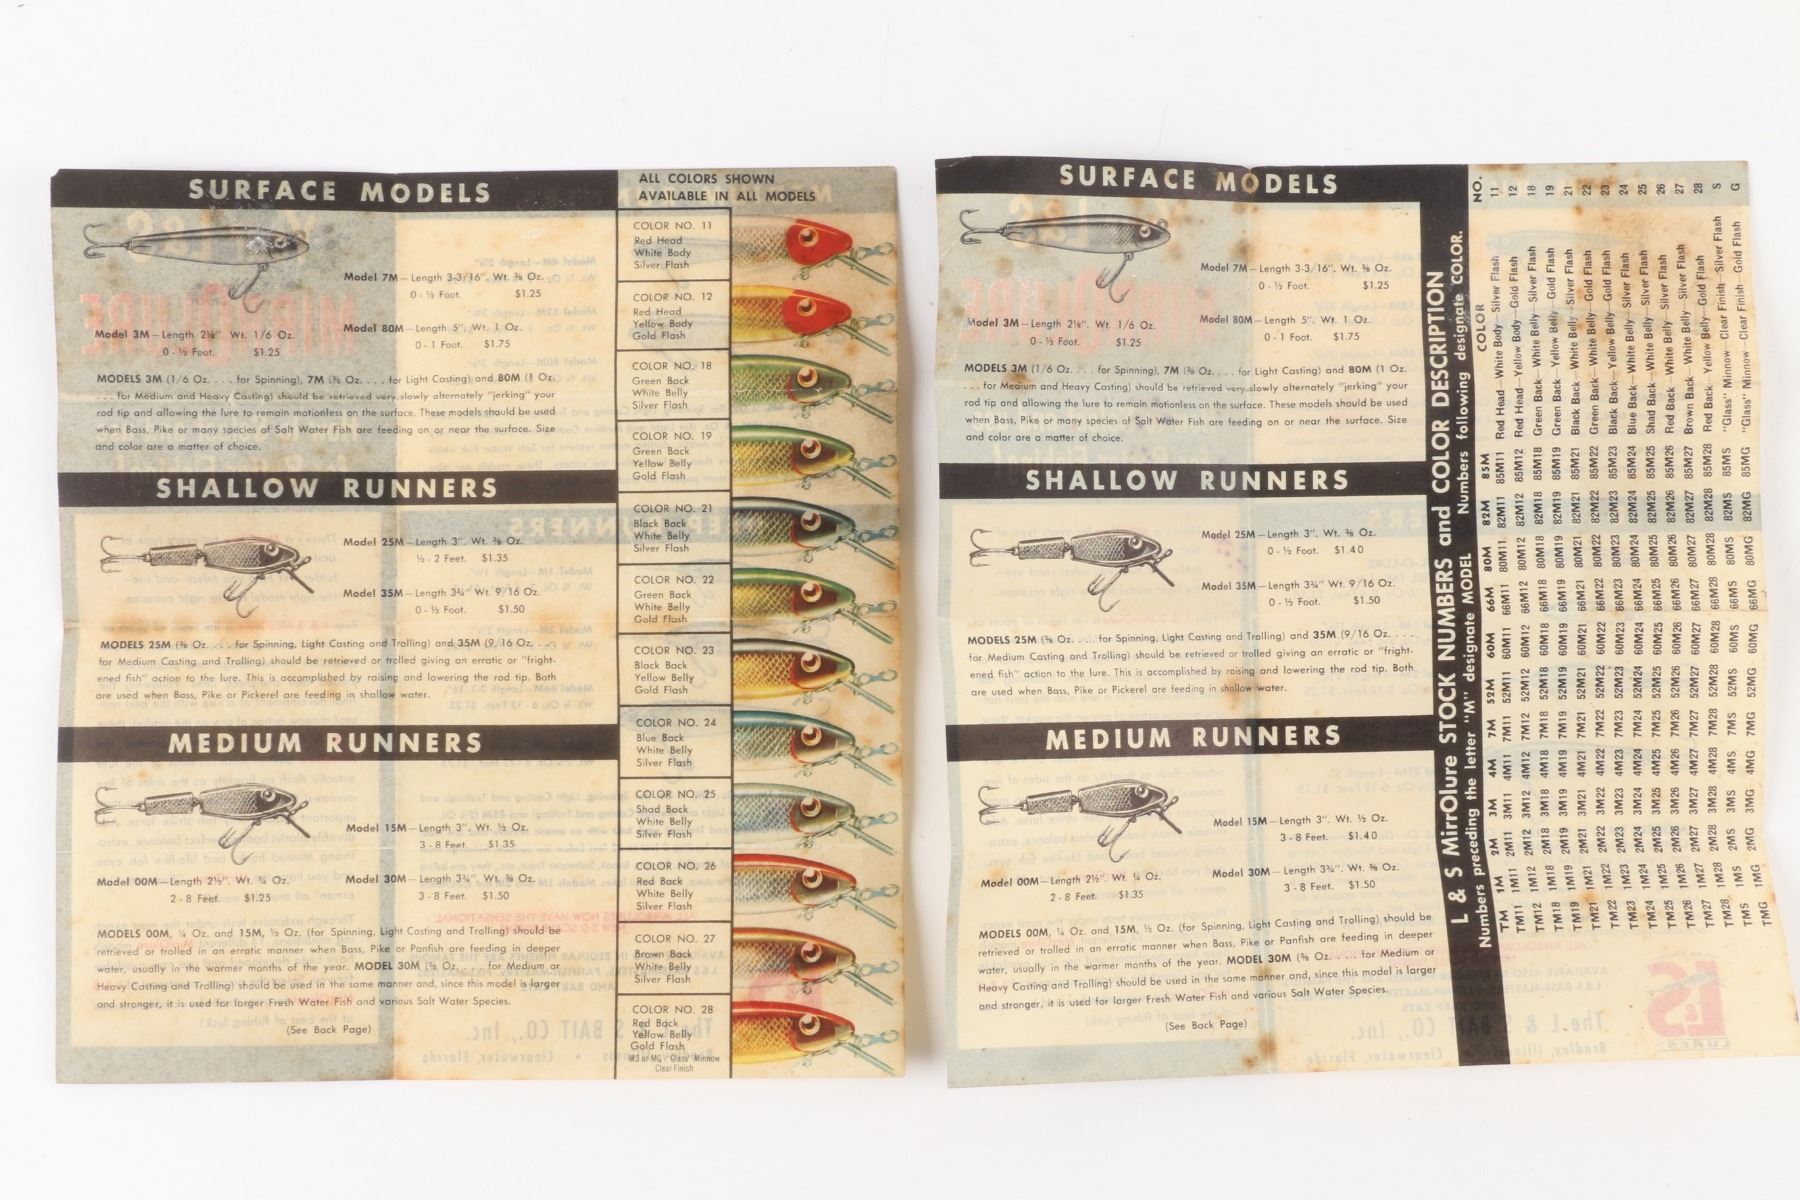 SURFACE MODELS
Model 7M—Length 3-3/16". Wt. ⅜ Oz.
0 - ½ Foot. $1.25
Model 3M—Length 2⅛". Wt. 1/6 Oz.
0 - ½ Foot. $1.25
Model 80M—Length 5". Wt. 1 Oz.
0 - 1 Foot. $1.75
MODELS 3M (1/6 Oz. . . . for Spinning), 7M (⅜ Oz. . . . for Light Casting) and 80M (1 Oz.
. . . for Medium and Heavy Casting) should be retrieved very slowly alternately "jerking" your
rod tip and allowing the lure to remain motionless on the surface. These models should be used
when Bass, Pike or many species of Salt Water Fish are feeding on or near the surface. Size
and color are a matter of choice.
SHALLOW RUNNERS
Model 25M—Length 3". Wt. ⅜ Oz.
½ - 2 Feet. $1.35
Model 35M—Length 3¾" Wt. 9/16 Oz.
0 - ½ Foot. $1.50
MODELS 25M (⅜ Oz. . . . for Spinning, Light Casting and Trolling) and 35M (9/16 Oz. . . .
for Medium Casting and Trolling) should be retrieved or trolled giving an erratic or "fright-
ened fish" action to the lure. This is accomplished by raising and lowering the rod tip. Both
are used when Bass, Pike or Pickerel are feeding in shallow water.
MEDIUM RUNNERS
Model 15M—Length 3". Wt. ½ Oz.
3 - 8 Feet. $1.35
Model 00M—Length 2½". Wt. ¼ Oz.
2 - 8 Feet. $1.25
Model 30M—Length 3¾". Wt. ⅝ Oz.
3 - 8 Feet. $1.50
MODELS 00M, ¼ Oz. and 15M, ½ Oz. (for Spinning, Light Casting and Trolling) should be
retrieved or trolled in an erratic manner when Bass, Pike or Panfish are feeding in deeper
water, usually in the warmer months of the year. MODEL 30M (⅝ Oz. . . . for Medium or
Heavy Casting and Trolling) should be used in the same manner and, since this model is larger
and stronger, it is used for larger Fresh Water Fish and various Salt Water Species.
(See Back Page)
ALL COLORS SHOWN
AVAILABLE IN ALL MODELS
COLOR NO. 11
Red Head
White Body
Silver Flash
COLOR NO. 12
Red Head
Yellow Body
Gold Flash
COLOR NO. 18
Green Back
White Belly
Silver Flash
COLOR NO. 19
Green Back
Yellow Belly
Gold Flash
COLOR NO. 21
Black Back
White Belly
Silver Flash
COLOR NO. 22
Green Back
White Belly
Gold Flash
COLOR NO. 23
Black Back
Yellow Belly
Gold Flash
COLOR NO. 24
Blue Back
White Belly
Silver Flash
COLOR NO. 25
Shad Back
White Belly
Silver Flash
COLOR NO. 26
Red Back
White Belly
Silver Flash
COLOR NO. 27
Brown Back
White Belly
Silver Flash
COLOR NO. 28
Red Back
Yellow Belly
Gold Flash
MS or MG - "Glass" Minnow
Clear Finish
SURFACE MODELS
Model 7M—Length 3-3/16". Wt. ⅜ Oz.
0 - ½ Foot. $1.25
Model 3M—Length 2⅛". Wt. 1/6 Oz.
0 - ½ Foot. $1.25
Model 80M—Length 5". Wt. 1 Oz.
0 - 1 Foot. $1.75
MODELS 3M (1/6 Oz. . . . for Spinning), 7M (⅜ Oz. . . . for Light Casting) and 80M (1 Oz.
. . . for Medium and Heavy Casting) should be retrieved very slowly alternately "jerking" your
rod tip and allowing the lure to remain motionless on the surface. These models should be used
when Bass, Pike or many species of Salt Water Fish are feeding on or near the surface. Size
and color are a matter of choice.
SHALLOW RUNNERS
Model 25M—Length 3". Wt. ⅜ Oz.
0 - ½ Foot. $1.40
Model 35M—Length 3¾" Wt. 9/16 Oz.
0 - ½ Foot. $1.50
MODELS 25M (⅜ Oz. . . . for Spinning, Light Casting and Trolling) and 35M (9/16 Oz. . . .
for Medium Casting and Trolling) should be retrieved or trolled giving an erratic or "fright-
ened fish" action to the lure. This is accomplished by raising and lowering the rod tip. Both
are used when Bass, Pike or Pickerel are feeding in shallow water.
MEDIUM RUNNERS
Model 15M—Length 3". Wt. ½ Oz.
3 - 8 Feet. $1.40
Model 00M—Length 2½". Wt. ¼ Oz.
2 - 8 Feet. $1.35
Model 30M—Length 3¾". Wt. ⅝ Oz.
3 - 8 Feet. $1.50
MODELS 00M, ¼ Oz. and 15M, ½ Oz. (for Spinning, Light Casting and Trolling) should be
retrieved or trolled in an erratic manner when Bass, Pike or Panfish are feeding in deeper
water, usually in the warmer months of the year. MODEL 30M (⅝ Oz. . . . for Medium or
Heavy Casting and Trolling) should be used in the same manner and, since this model is larger
and stronger, it is used for larger Fresh Water Fish and various Salt Water Species.
(See Back Page)
L & S MirrOlure STOCK NUMBERS and COLOR DESCRIPTION
Numbers preceding the letter "M" designate MODEL Numbers following designate COLOR.
TM 1M 2M 3M 4M 7M 52M 60M 66M 80M 82M 85M COLOR NO.
TM11 1M11 2M11 3M11 4M11 7M11 52M11 60M11 66M11 80M11 82M11 85M11 Red Head—White Body—Silver Flash 11
TM12 1M12 2M12 3M12 4M12 7M12 52M12 60M12 66M12 80M12 82M12 85M12 Red Head—Yellow Body—Gold Flash 12
TM18 1M18 2M18 3M18 4M18 7M18 52M18 60M18 66M18 80M18 82M18 85M18 Green Back—White Belly—Silver Flash 18
TM19 1M19 2M19 3M19 4M19 7M19 52M19 60M19 66M19 80M19 82M19 85M19 Green Back—Yellow Belly—Gold Flash 19
TM21 1M21 2M21 3M21 4M21 7M21 52M21 60M21 66M21 80M21 82M21 85M21 Black Back—White Belly—Silver Flash 21
TM22 1M22 2M22 3M22 4M22 7M22 52M22 60M22 66M22 80M22 82M22 85M22 Green Back—White Belly—Gold Flash 22
TM23 1M23 2M23 3M23 4M23 7M23 52M23 60M23 66M23 80M23 82M23 85M23 Black Back—Yellow Belly—Gold Flash 23
TM24 1M24 2M24 3M24 4M24 7M24 52M24 60M24 66M24 80M24 82M24 85M24 Blue Back—White Belly—Silver Flash 24
TM25 1M25 2M25 3M25 4M25 7M25 52M25 60M25 66M25 80M25 82M25 85M25 Shad Back—White Belly—Silver Flash 25
TM26 1M26 2M26 3M26 4M26 7M26 52M26 60M26 66M26 80M26 82M26 85M26 Red Back—White Belly—Silver Flash 26
TM27 1M27 2M27 3M27 4M27 7M27 52M27 60M27 66M27 80M27 82M27 85M27 Brown Back—White Belly—Silver Flash 27
TM28 1M28 2M28 3M28 4M28 7M28 52M28 60M28 66M28 80M28 82M28 85M28 Red Back—Yellow Belly—Gold Flash 28
TMS 1MS 2MS 3MS 4MS 7MS 52MS 60MS 66MS 80MS 82MS 85MS "Glass" Minnow—Clear Finish—Silver Flash S
TMG 1MG 2MG 3MG 4MG 7MG 52MG 60MG 66MG 80MG 82MG 85MG "Glass" Minnow—Clear Finish—Gold Flash G